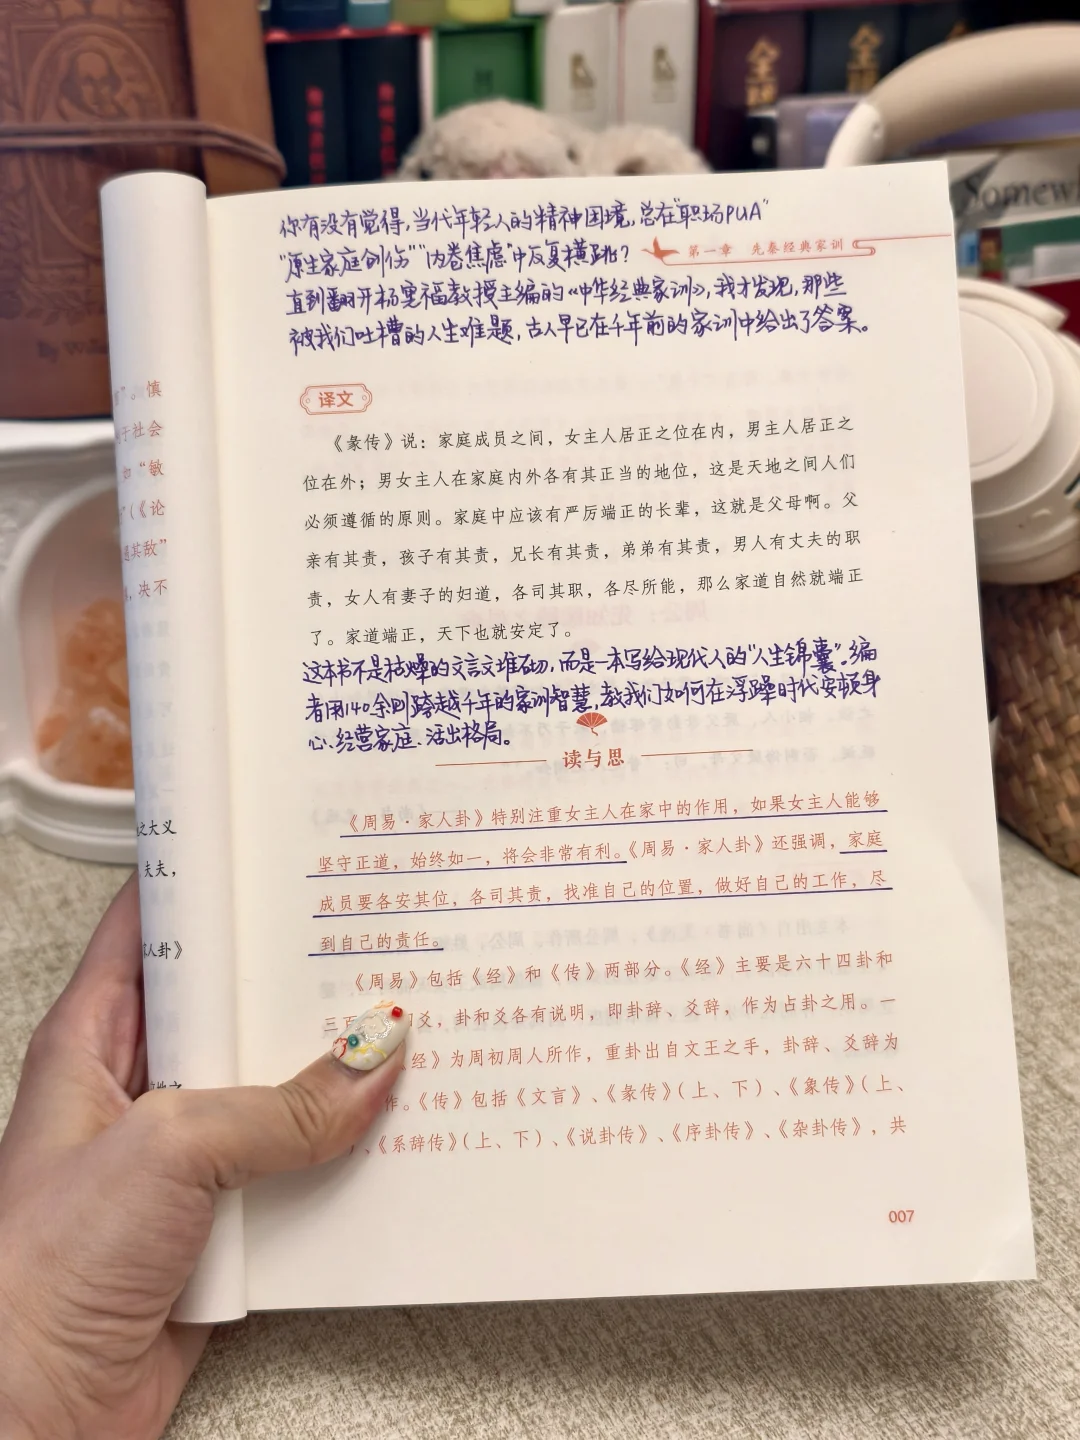 你有没有觉得,当代年轻人的精神困境,总在"职场PUA"
"原生家庭创伤""内卷焦虑"中反复横跳?
第一章 先秦经典家训
直到翻开杨寔福教授主编的《中华经典家训》,我才发现,那些
被我们吐槽的人生难题,古人早已在千年前的家训中给出了答案。
译文
《彖传》说：家庭成员之间，女主人居正之位在内，男主人居正之
位在外；男女主人在家庭内外各有其正当的地位，这是天地之间人们
必须遵循的原则。家庭中应该有严厉端正的长辈，这就是父母啊。父
亲有其责，孩子有其责，兄长有其责，弟弟有其责，男人有丈夫的职
责，女人有妻子的妇道，各司其职，各尽所能，那么家道自然就端正
了。家道端正，天下也就安定了。
这本书不是枯燥的文言文堆砌,而是一本写给现代人的"人生锦囊"。编
者用140余则跨越千年的家训智慧,教我们如何在浮躁时代安顿身
心、经营家庭、活出格局。
读与思
《周易·家人卦》特别注重女主人在家中的作用，如果女主人能够
坚守正道，始终如一，将会非常有利。《周易·家人卦》还强调，家庭
成员要各安其位，各司其责，找准自己的位置，做好自己的工作，尽
到自己的责任。
《周易》包括《经》和《传》两部分。《经》主要是六十四卦和
三百 爻，卦和爻各有说明，即卦辞、爻辞，作为占卦之用。一
《经》为周初周人所作，重卦出自文王之手，卦辞、爻辞为
作。《传》包括《文言》、《彖传》（上、下）、《象传》（上、
）、《系辞传》（上、下）、《说卦传》、《序卦传》、《杂卦传》，共
007
”。慎
于社会
如“敏
”（《论
遇其敌”
，决不
之大义
夫夫，
家人卦》
全
全
Somewh